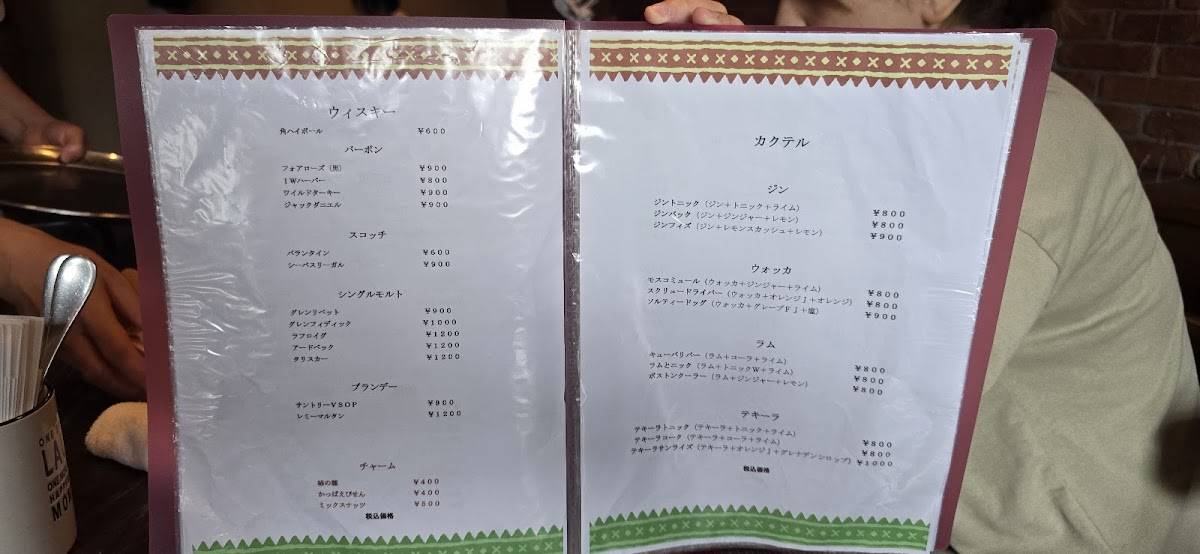 ウィスキー
角ハイボール ￥600
バーボン
フォアローズ（黒） ￥900
IWハーパー ￥800
ワイルドターキー ￥900
ジャックダニエル ￥900
スコッチ
バランタイン ￥600
シーバスリーガル ￥900
シングルモルト
グレンリベット ￥900
グレンフィディック ￥1000
ラフロイグ ￥1200
アードベック ￥1200
タリスカー ￥1200
ブランデー
サントリーVSOP ￥900
レミーマルタン ￥1200
チャーム
柿の種 ￥400
かっぱえびせん ￥400
ミックスナッツ ￥500
税込価格
カクテル
ジン
ジントニック（ジン＋トニック＋ライム） ￥800
ジンバック（ジン＋ジンジャー＋レモン） ￥800
ジンフィズ（ジン＋レモンスカッシュ＋レモン） ￥900
ウォッカ
モスコミュール（ウォッカ＋ジンジャー＋ライム） ￥800
スクリュードライバー（ウォッカ＋オレンジJ＋オレンジ） ￥800
ソルティードッグ（ウォッカ＋グレープFJ＋塩） ￥900
ラム
キューバリバー（ラム＋コーラ＋ライム） ￥800
ラムとニック（ラム＋トニックW＋ライム） ￥800
ボストンクーラー（ラム＋ジンジャー＋レモン） ￥800
テキーラ
テキーラトニック（テキーラ＋トニック＋ライム） ￥800
テキーラコーク（テキーラ＋コーラ＋ライム） ￥800
テキーラサンライズ（テキーラ＋オレンジJ＋グレナデンシロップ） ￥1000
税込価格